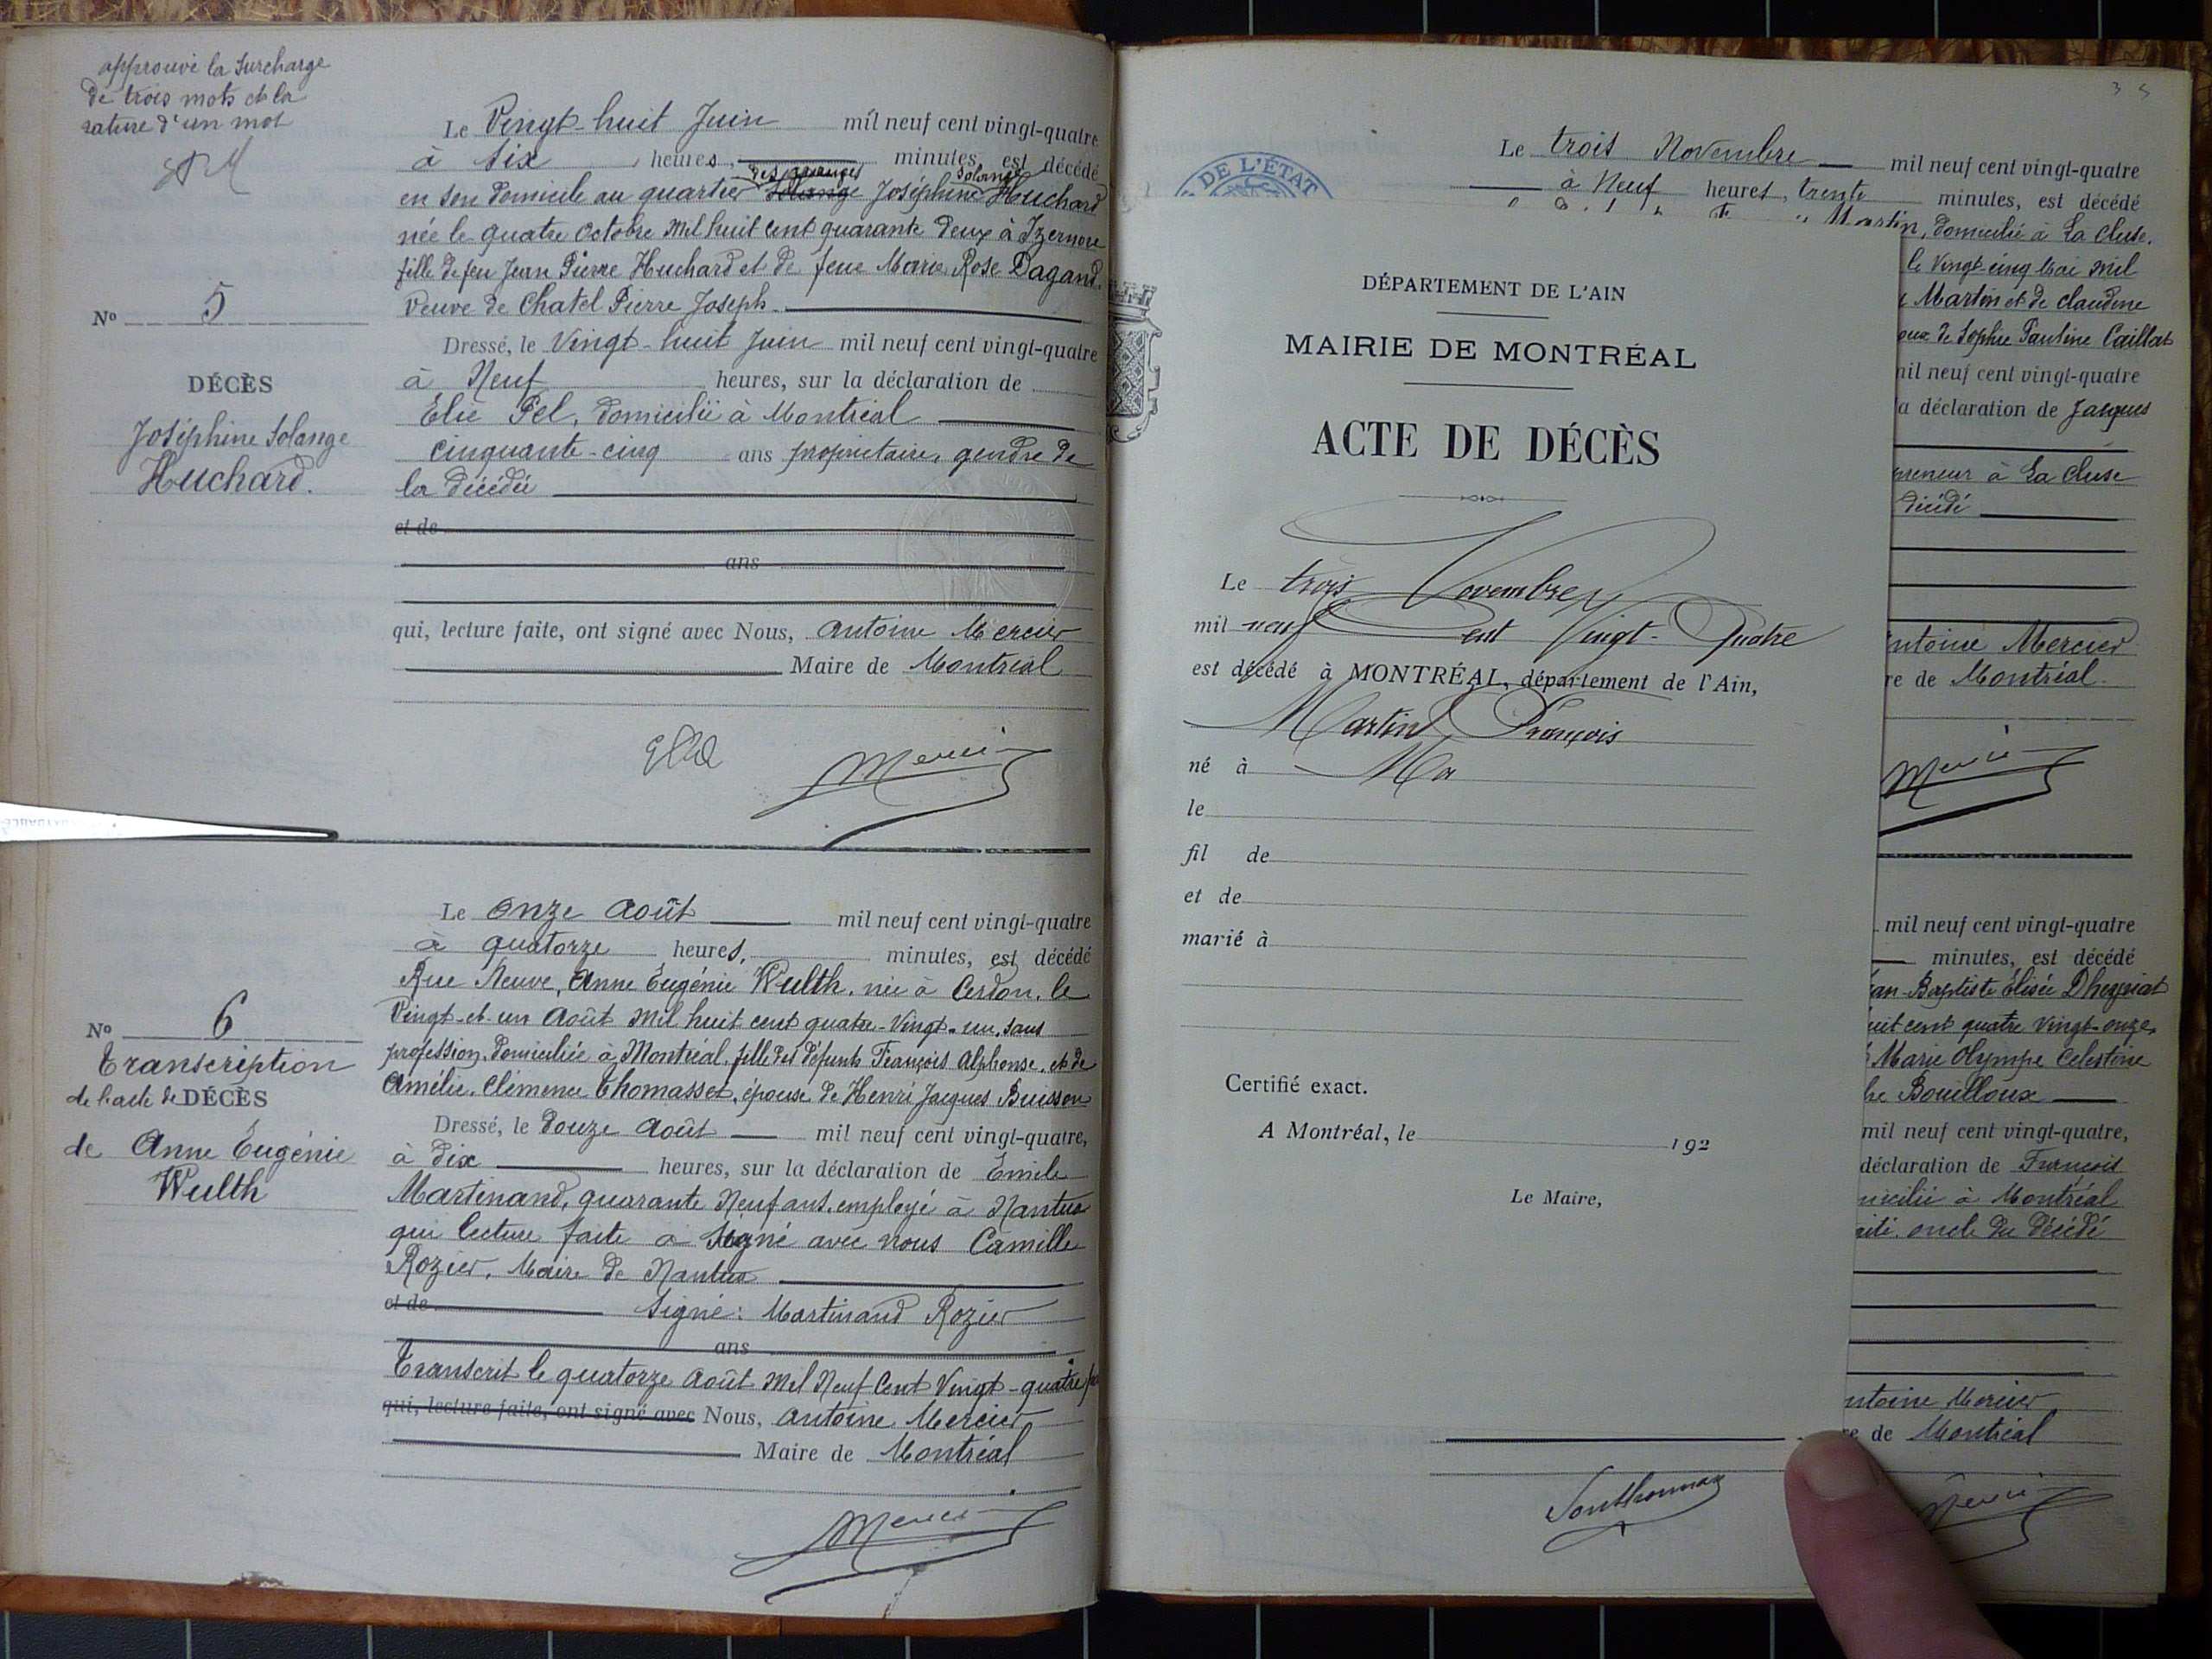 approuvé la surcharge
de trois mots et la
rature d'un mot
Le Vingt-huit Juin mil neuf cent vingt-quatre
à Six heures, minutes, est décédé
des granges Solange
en son domicile au quartier Solange Joséphine Huchard
née le quatre Octobre Mil huit cent quarante deux à Izernore
fille de feu Jean Pierre Huchard et de feue Marie Rose Dagand.
Veuve de Chatel Pierre Joseph.
Nº 5
Dressé, le Vingt-huit Juin mil neuf cent vingt-quatre
DÉCÈS
à Neuf heures, sur la déclaration de
Joséphine Solange
Huchard.
Elie Pel, domicilié à Montréal
cinquante-cinq ans propriétaire, gendre de
la décédée
et de
ans
qui, lecture faite, ont signé avec Nous, Antoine Mercier
Maire de Montréal
Mercier
Le Onze Août mil neuf cent vingt-quatre
à quatorze heures, minutes, est décédé
Rue Neuve, Anne Eugénie Wulth, née à Cerdon, le
Vingt-et-un Août Mil huit cent quatre-Vingt-un, sans
profession, domiciliée à Montréal, fille des défunts François Alphonse, et de
Amélie, Clémence Thomasset, épouse de Henri Jacques Buisson
Nº 6
Transcription
de l'acte de DÉCÈS
de Anne Eugénie
Wulth
Dressé, le Douze Août mil neuf cent vingt-quatre,
à Dix heures, sur la déclaration de Émile
Martinand, quarante Neuf ans, employé à Nantua
qui lecture faite a Signé avec nous Camille
Rozier, Maire de Nantua
et de Signé: Martinand Rozier
ans
Transcrit le quatorze Août Mil Neuf Cent Vingt-quatre
qui, lecture faite, ont signé avec Nous, Antoine Mercier
Maire de Montréal
Mercier
35
Le trois Novembre mil neuf cent vingt-quatre
à Neuf heures, trente minutes, est décédé
Martin, domicilié à La Cluse.
DE L'ÉTAT
le Vingt-cinq Mai Mil
Martin et de Claudine
de Sophie Pauline Caillat
mil neuf cent vingt-quatre
la déclaration de Jacques
à La Cluse
décédé
Antoine Mercier
re de Montréal.
Mercier
DÉPARTEMENT DE L'AIN
MAIRIE DE MONTRÉAL
ACTE DE DÉCÈS
Le trois Novembre
mil neuf Cent Vingt-Quatre
est décédé à MONTRÉAL, département de l'Ain,
Martin François
né à Ma
le
fil de
et de
marié à
Certifié exact.
A Montréal, le 192
Le Maire,
mil neuf cent vingt-quatre
minutes, est décédé
Jean-Baptiste Élisée Dheyriat
huit cent quatre Vingt-onze,
Marie Olympe Celestine
Bouilloux
mil neuf cent vingt-quatre,
déclaration de François
domicilié à Montréal
oncle du décédé
Antoine Mercier
re de Montréal
Sonthonnax
Mercier